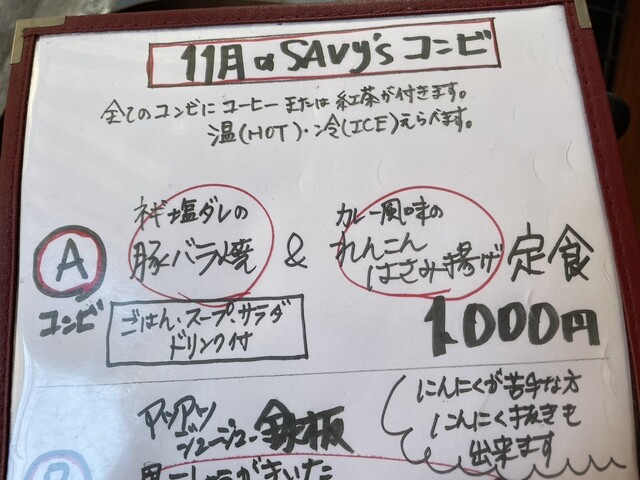 11月のSAVy'sコンビ
全てのコンビにコーヒーまたは紅茶が付きます。
温(HOT)・冷(ICE)えらべます。
A
コンビ
ネギ塩ダレの
豚バラ焼
&
カレー風味の
れんこん
はさみ揚げ
定食
1000円
ごはん・スープ・サラダ
ドリンク付
B
アツアツ
ジュージュー鉄板
にんにくが苦手な方
にんにく抜きも
出来ます
黒こしょうがきいた